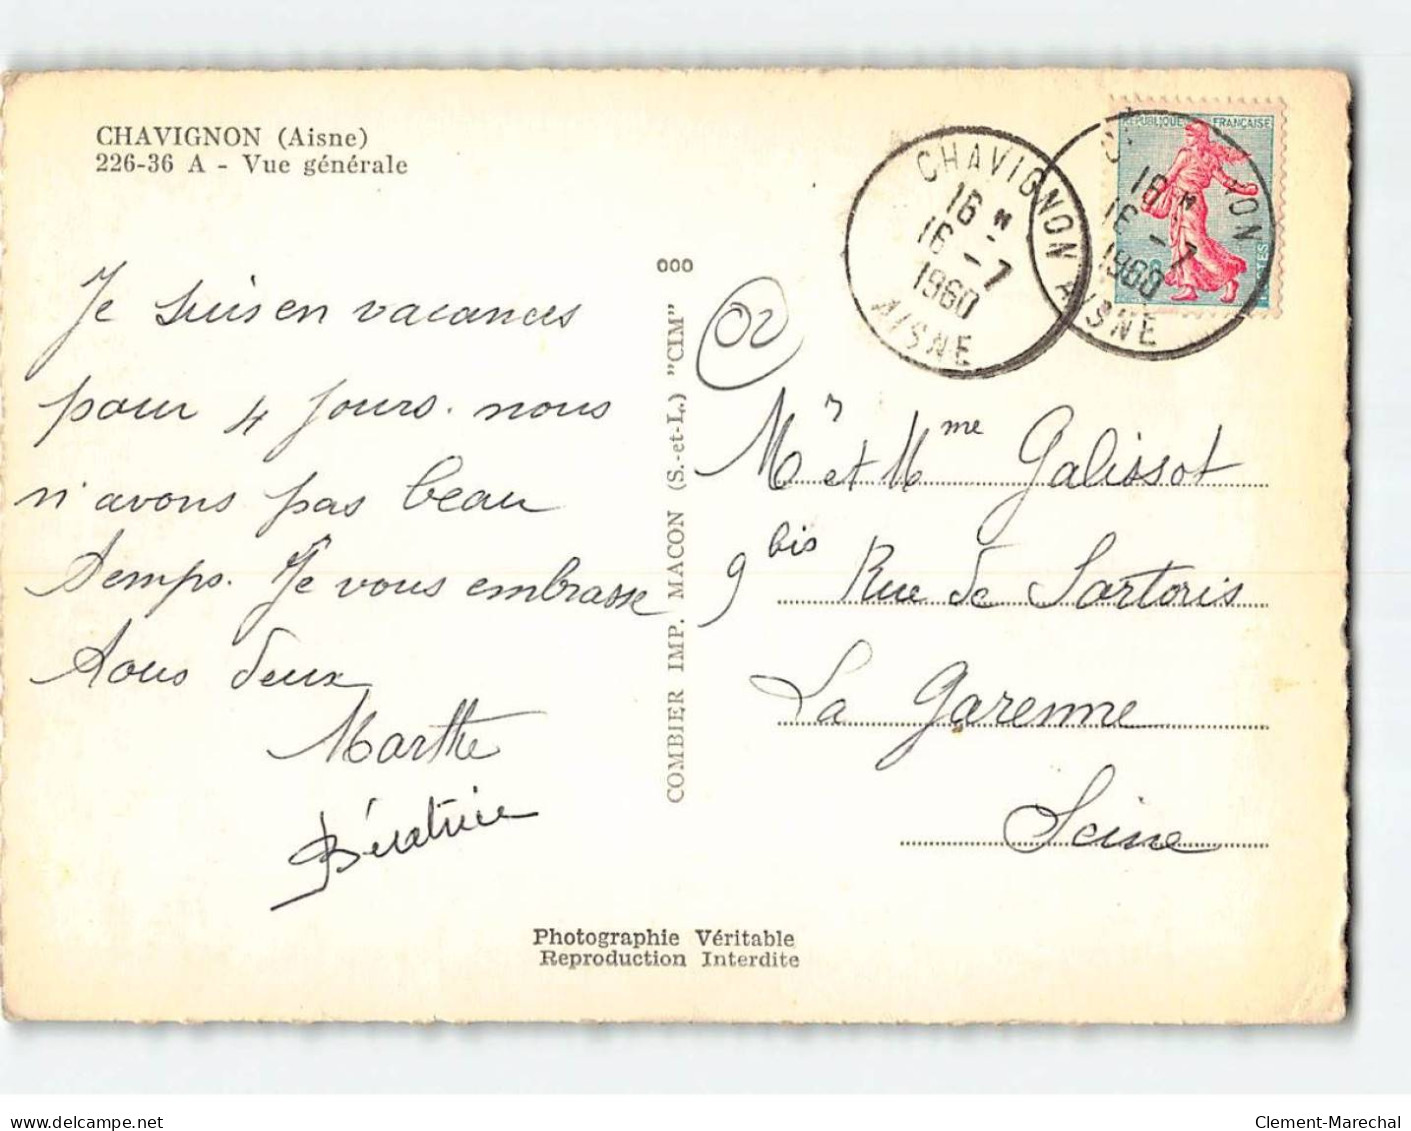 CHAVIGNON (Aisne)
226-36 A - Vue générale
Je suis en vacances
pour 4 jours. nous
n'avons pas beau
temps. Je vous embrasse
tous deux
Marthe
Béatrice
000
COMBIER IMP. MACON (S.-et-L.) "CIM"
02
CHAVIGNON
16 H
16 - 7
1960
AISNE
RÉPUBLIQUE FRANÇAISE
16 H
16 - 7
1960
AISNE
Mr et Mme Galissot
9 bis Rue de Sartoris
La Garenne
Seine
Photographie Véritable
Reproduction Interdite
delcampe.net
Clement-Marechal